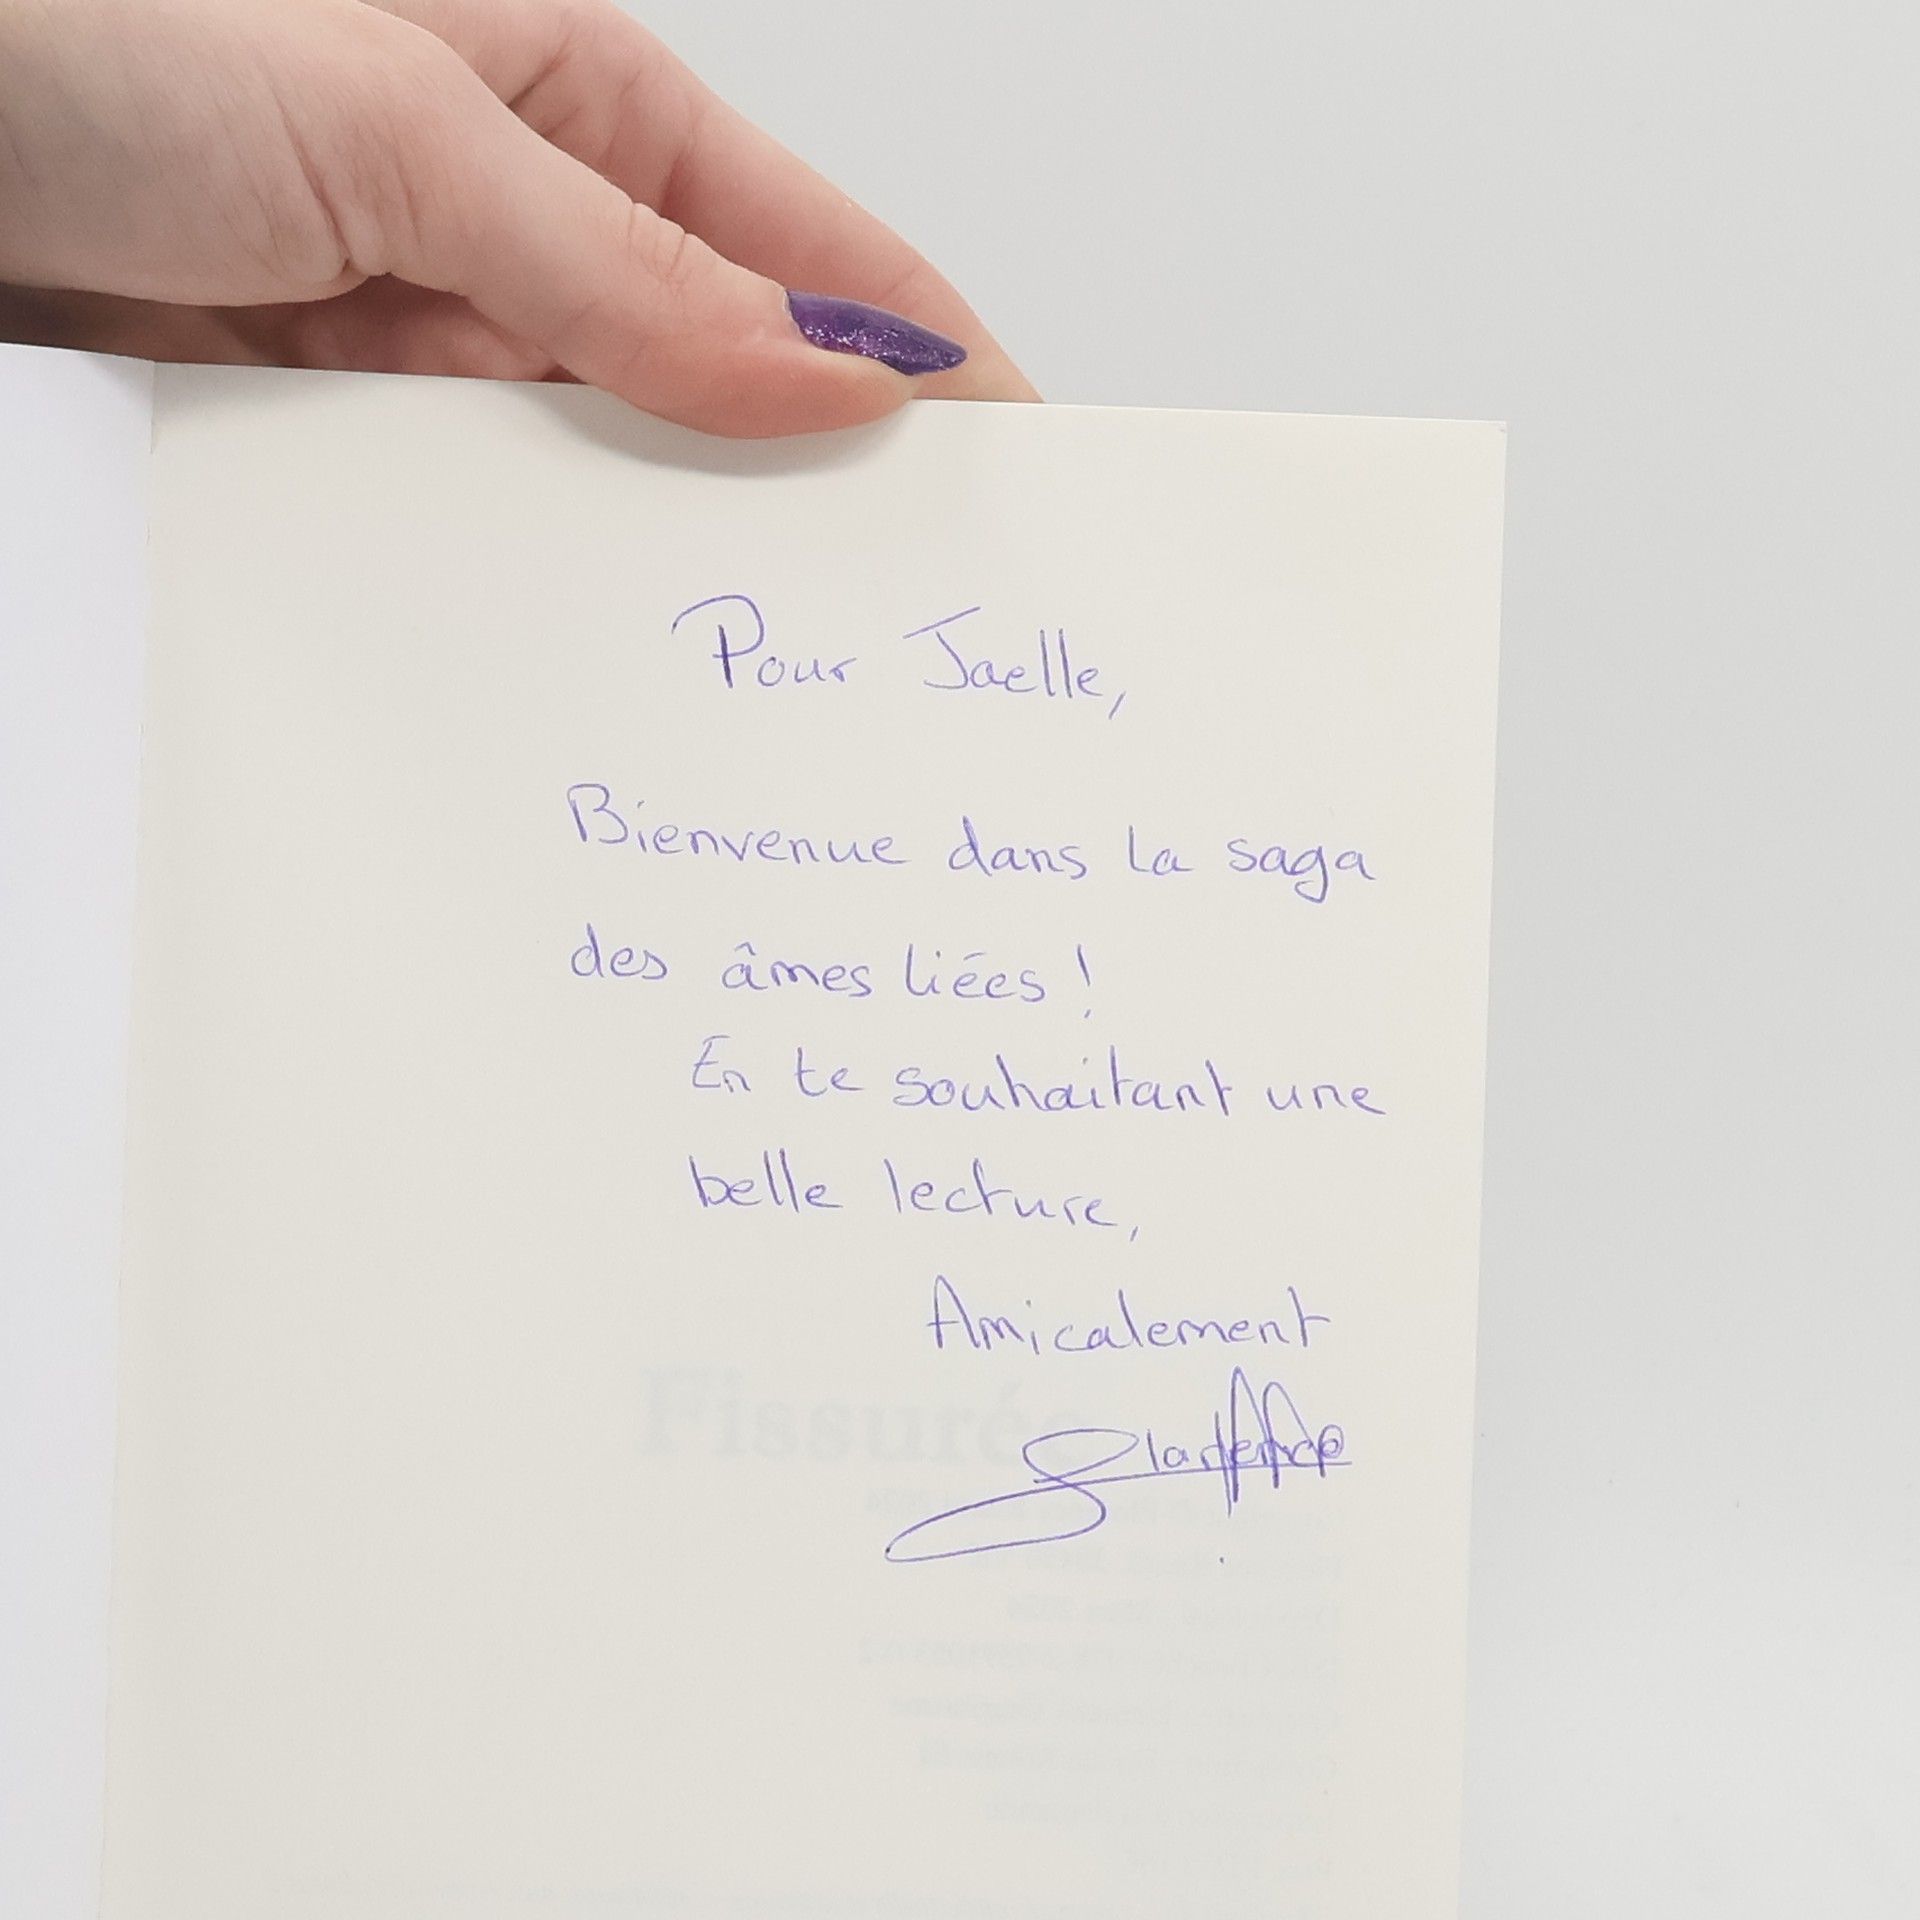 Pour Jaelle,
Bienvenue dans la saga
des âmes liées !
En te souhaitant une
belle lecture,
Amicalement
Fissurée